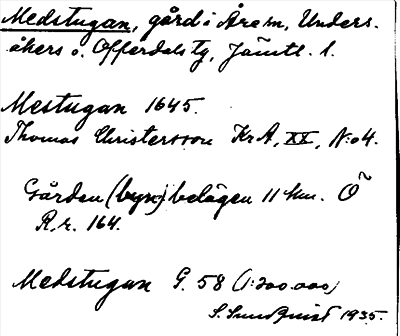 Medstugan, gård i Åre sn, Unders-
åkers o. Offerdals tg, Jämtl. l.
Mestugan 1645.
Thomas Christersson KrA, XX, N:o 4.
Gården (byn) belägen 11 km. Ö
R.r. 164.
Medstugan G. 58 (1:200.000)
S. Sundquist 1935.